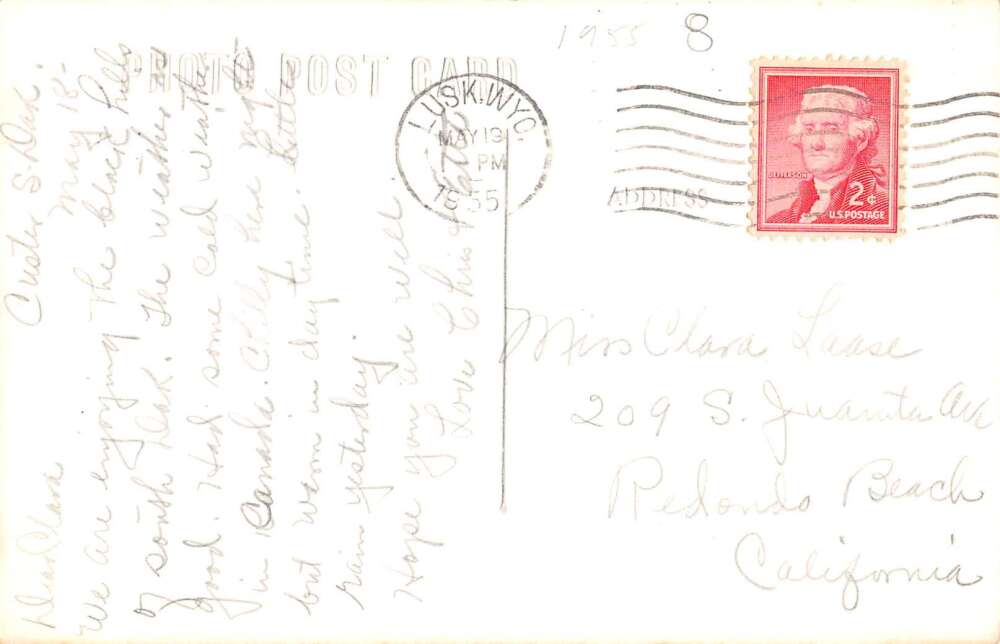 1955 8
PHOTO POST CARD
LUSK, WYO.
MAY 19
PM
1955
ADDRESS
JEFFERSON
2¢
U.S. POSTAGE
Custer S. Dak.
May 18-
Dear Clara
We are enjoying the black hills
of south Dak. The weather is
good. Had some cold weather
in Canada. Chilly here
but warm in day time. Little
rain yesterday.
Hope you are well
Love Chris &
Miss Clara Laase
209 S. Juanita Ave
Redondo Beach
California